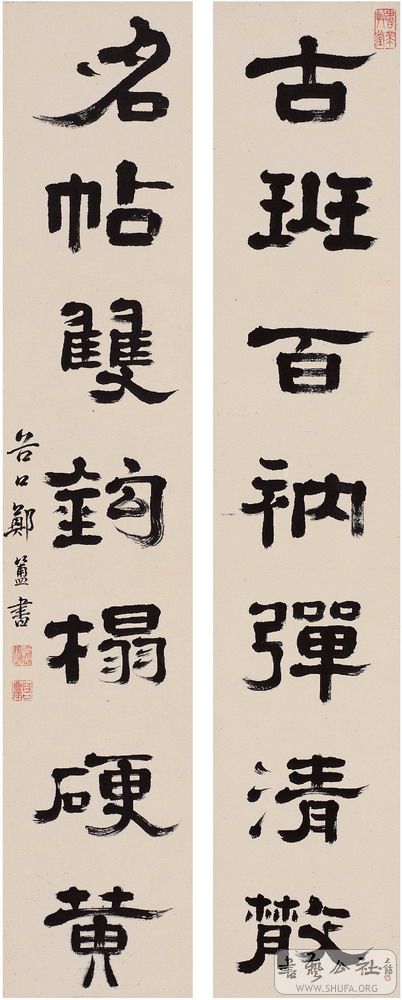 古班百衲彈清散
名帖雙鉤榻硬黃
谷口鄭簠書
書藝公社
WWW.SHUFA.ORG